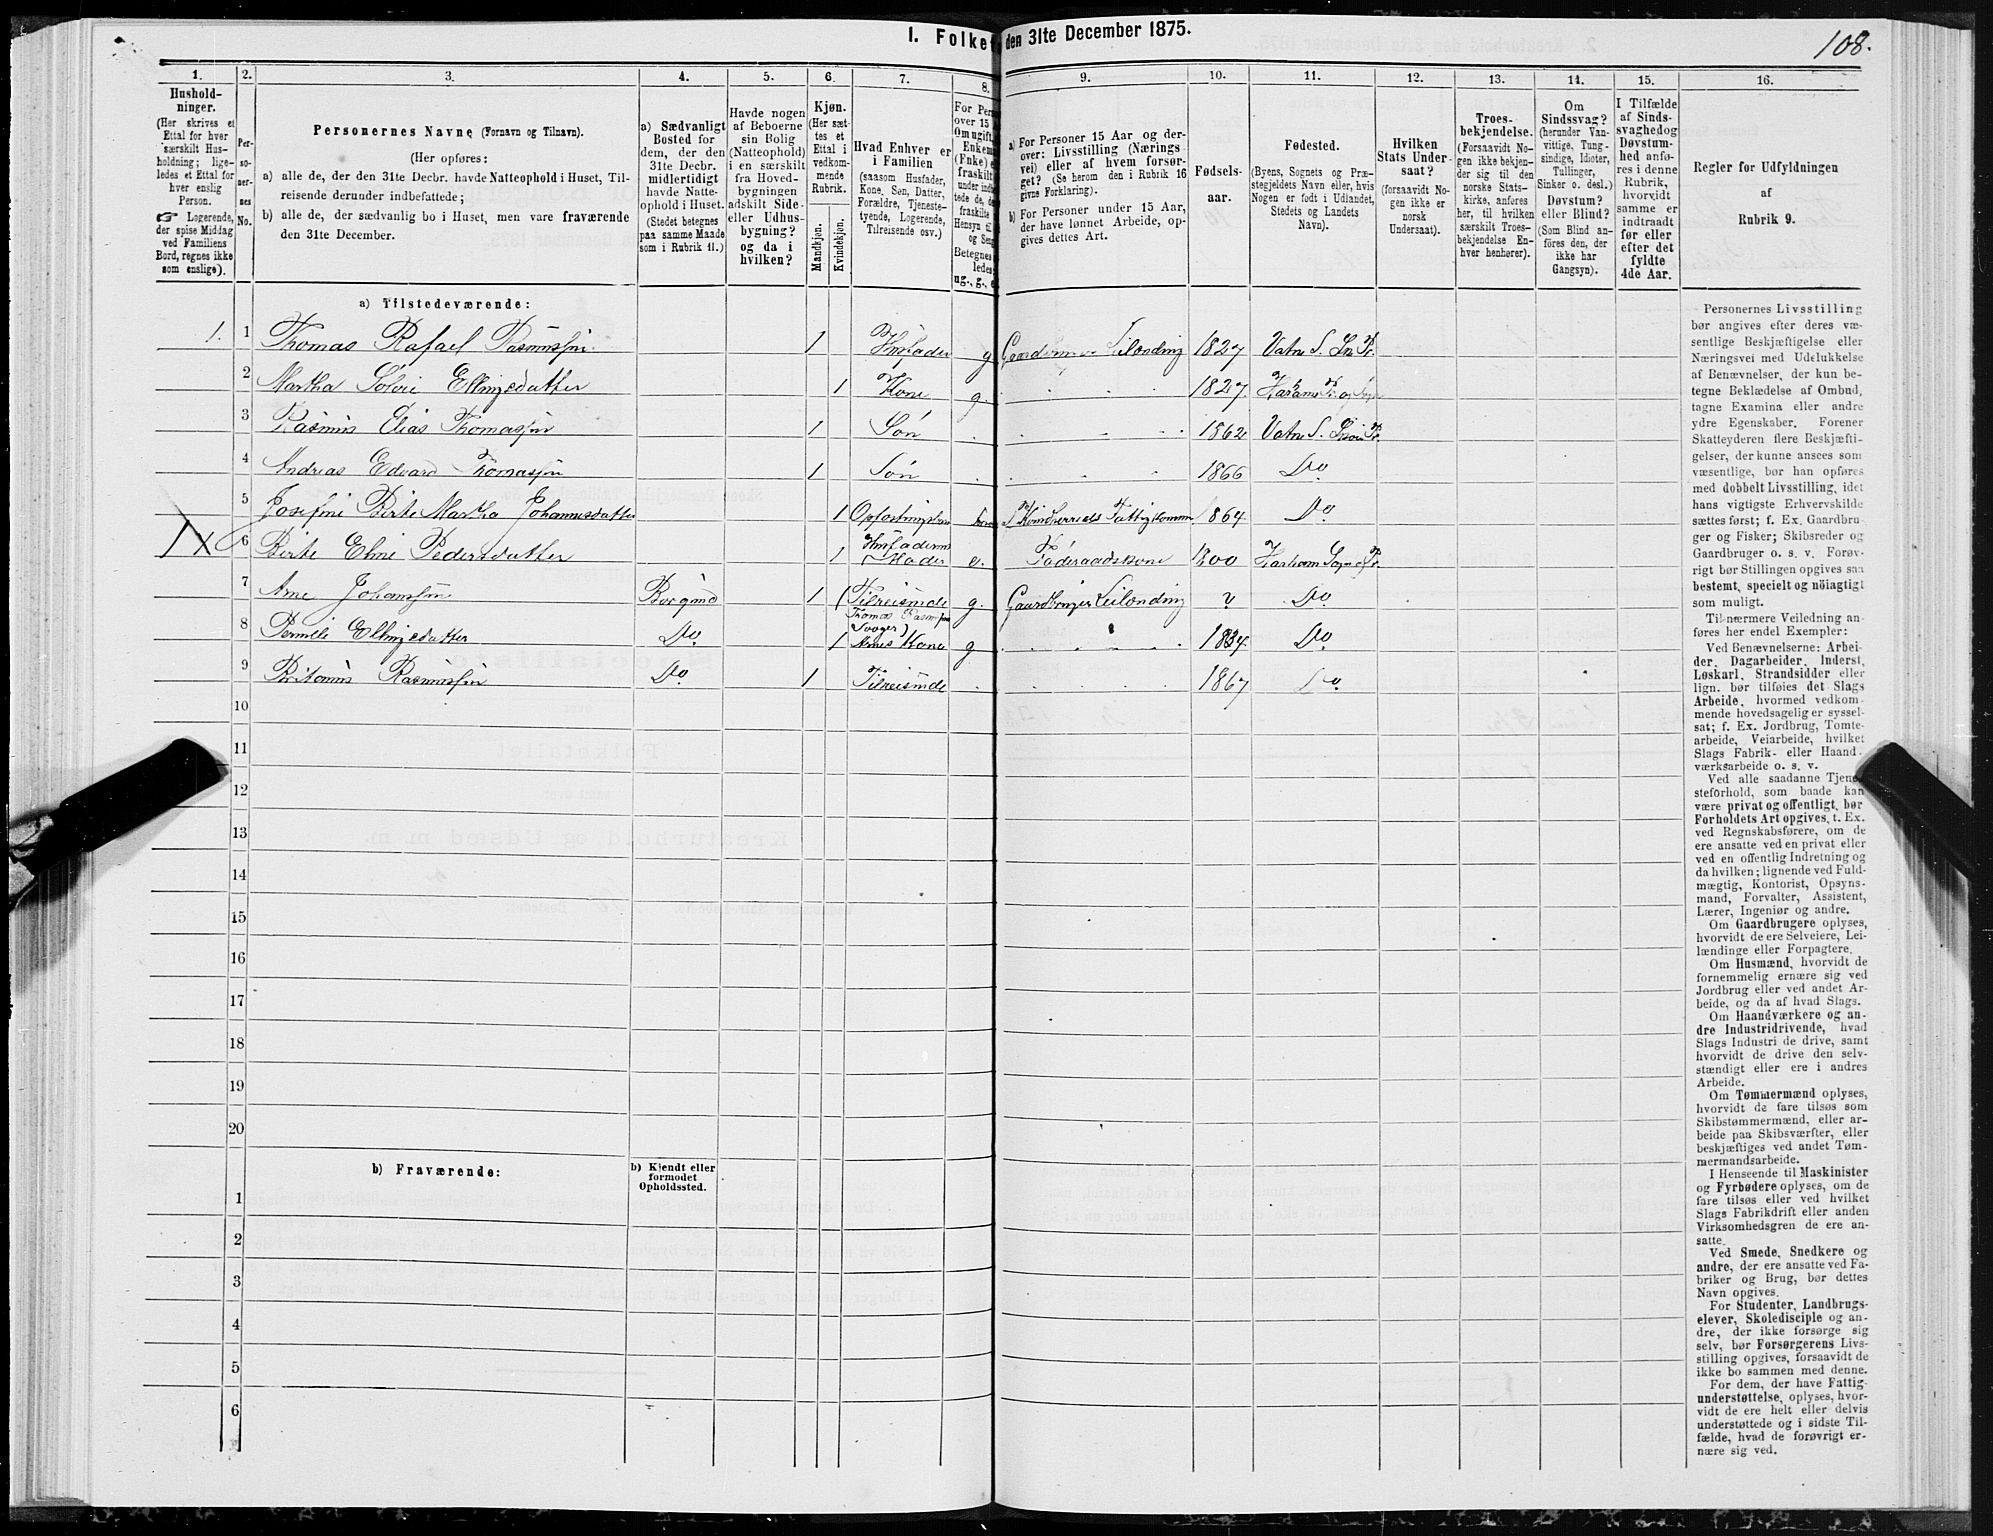 I. Folket
den 31te December 1875.
108.
1.
2.
3.
4.
5.
6.
7.
8.
9.
10.
11.
12.
13.
14.
15.
16.
Hushold-
ninger.
(Her skrives et
Ettal for hver
særskilt Hus-
holdning; lige-
ledes et Ettal for
hver enslig
Person.
☞ Logerende,
der spise Middag
ved Familiens
Bord, regnes ikke
som enslige).
Per-
so-
ner-
nes
No.
Personernes Navne (Fornavn og Tilnavn).
(Her opføres:
a) alle de, der den 31te Decbr. havde Natteophold i Huset, Til-
reisende derunder indbefattede;
b) alle de, der sædvanlig bo i Huset, men vare fraværende
den 31te December.
a) Sædvanligt
Bosted for
dem, der den
31te Decbr.
midlertidigt
havde Natte-
ophold i Huset.
(Stedet betegnes
paa samme Maade
som i Rubrik 11.)
Havde nogen
af Beboerne
sin Bolig
(Natteophold)
i en særskilt
fra Hoved-
bygningen
adskilt Side-
eller Udhus-
bygning?
og da i
hvilken?
Kjøn.
(Her sæt-
tes et
Ettal i
vedkom-
mende
Rubrik.
Mandkjøn.
Kvindekjøn.
Hvad Enhver er
i Familien
(saasom Husfader,
Kone, Søn, Datter,
Forældre, Tjeneste-
tyende, Logerende,
Tilreisende osv.)
For Pers
over 15
Om ugift,
Enkem
(Fnke) e
fraskilt
under ind
tede de, de
fraskilte
Hensyn til
og Sen
Betegnes
ledes:
ug., g., e
a) For Personer 15 Aar og der-
over: Livsstilling (Nærings-
vei) eller af hvem forsør-
get? (Se herom den i Rubrik 16
givne Forklaring).
b) For Personer under 15 Aar,
der have lønnet Arbeide, op-
gives dettes Art.
Fødsels-
aar.
Fødested.
(Byens, Sognets og Præ-
stegjeldets Navn eller, hvis
Nogen er født i Udlandet,
Stedets og Landets
Navn).
Hvilken
Stats Under-
saat?
(forsaavidt No-
gen ikke er
norsk
Undersaat).
Troes-
bekjendelse.
(Forsaavidt No-
gen ikke bekjen-
der sig til den
norske Stats-
kirke, anføres
her, til hvilken
særskilt Troes-
bekjendelse En-
hver henhører).
Om
Sindssvag?
(herunder Van-
vittige, Tung-
sindige, Idioter,
Tullinger,
Sinker o. desl.)
Døvstum?
eller Blind?
(Som Blind an-
føres den, der
ikke har
Gangsyn).
I Tilfælde
af Sinds-
svaghedog
Døvstum-
hed anfø-
res i denne
Rubrik,
hvorvidt
samme er
indtraadt
før eller
efter det
fyldte
4de Aar.
Regler for Udfyldningen
af
Rubrik 9.
a) Tilstedeværende:
1. 1 Thomas Rafael Rasmussen 1 Husfader g Gaardbruger Leilænding 1827 Vatne S.
2 Martha Ellingsdatter 1 Kone g. 1827 Harams Pr. og Sogn
3 Rasmus Elias Thomassen 1 Søn 1862 Vatne S.
4 Andreas Edvard Thomassen 1 Søn 1866 Do
5 Josefine Birte Martha Johannesdatter 1 1864 Do
6 Birte Eline Pedersdatter 1 Husfaderens Moder e. Føderaadskone 1800 Harham Sogn
7 Arne Johansen Borgund 1 (Tilreisende g. Gaardbruger Leilænding ? Do
Thomas Rasmussens
Svoger)
8 Pernele Ellingsdatter Do 1 Arnes Kone g 1834 Do
9 Rasmussen Do 1 Tilreisende 1867 Do
10
11
12
13
14
15
16
17
18
19
20
b) Fraværende:
b) Kjendt eller
formodet
Opholdssted.
1
2
3
4
5
6
Personernes Livsstilling
bør angives efter deres væ-
sentlige Beskjæftigelse eller
Næringsvei med Udelukkelse
af Benævnelser, der kun be-
tegne Beklædelse af Ombud,
tagne Examina eller andre
ydre Egenskaber. Forener
Skatteyderen flere Beskjæfti-
gelser, der kunne ansees som
væsentlige, bør han opføres
med dobbelt Livsstilling, idet
hans vigtigste Erhvervskilde
sættes først; f. Ex. Gaardbru-
ger og Fisker; Skibsreder og
Gaardbruger o. s. v. Forøv-
rigt bør Stillingen opgives saa
bestemt, specielt og nøiagtigt
som muligt.
Til nærmere Veiledning an-
føres her endel Exempler:
Ved Benævnelserne: Arbei-
der, Dagarbeider, Inderst,
Løskarl, Strandsidder eller
lign. bør tilføies det Slags
Arbeide, hvormed vedkom-
mende hovedsagelig er syssel-
sat; f. Ex. Jordbrug, Tomte-
arbeide, Veiarbeide, hvilket
Slags Fabrik- eller Haand-
værksarbeide o. s. v.
Ved alle saadanne Tjene-
steforhold, som baade kan
være privat og offentligt, bør
Forholdets Art opgives, t. Ex.
ved Regnskabsførere, om de
ere ansatte ved en privat eller
ved en offentlig Indretning og
da hvilken; lignende ved Fuld-
mægtig, Kontorist, Opsyns-
mand, Forvalter, Assistent,
Lærer, Ingeniør og andre.
Om Gaardbrugere oplyses,
hvorvidt de ere Selveiere, Lei-
lændinge eller Forpagtere.
Om Husmænd, hvorvidt de
fornemmelig ernære sig ved
Jordbrug eller ved andet Ar-
beide, og da af hvad Slags.
Om Haandværkere og an-
dre Industridrivende, hvad
Slags Industri de drive, samt
hvorvidt de drive den selv-
stændigt eller ere i andres
Arbeide.
Om Tømmermænd oplyses,
hvorvidt de fare tilsøs som
Skibstømmermænd, eller ar-
beide paa Skibsværfter, eller
beskjæftiges ved andet Tøm-
mermandsarbeide.
I Henseende til Maskinister
og Fyrbødere oplyses, om de
fare tilsøs eller ved hvilket
Slags Fabrikdrift eller anden
Virksomhedsgren de ere an-
satte.
Ved Smede, Snedkere og
andre, der ere ansatte ved Fa-
briker og Brug, bør dettes
Navn opgives.
For Studenter, Landbrugs-
elever, Skoledisciple og an-
dre, der ikke forsørge sig
selv, bør Forsørgerens Livs-
stilling opgives, forsaavidt de
ikke bo sammen med denne.
For dem, der have Fattig-
understøttelse, oplyses, hvor-
vidt de ere helt eller delvis
understøttede og i sidste Til-
fælde, hvad de forøvrigt er-
nære sig ved.